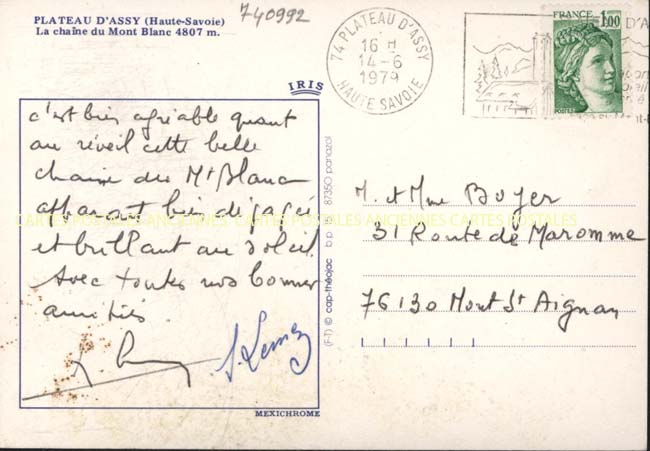 PLATEAU D'ASSY (Haute-Savoie)
La chaîne du Mont Blanc 4807 m.
740992
74 PLATEAU D'ASSY
16 H
14-6
1979
HAUTE SAVOIE
FRANCE
1.00
POSTES
IRIS
c'est bien agréable quant
au réveil cette belle
chaine du Mt Blanc
apparait bien dégagée
et brillant au soleil.
Avec toutes nos bonnes
amitiés
CARTES POSTALES ANCIENNES CARTES POSTALES ANCIENNES CARTES POSTALES
MEXICHROME
(F-T) © cap-théojac b.p. 16 87350 panazol
M. et Mme Boyer
31 Route de Maromme
76130 Mont St Aignan